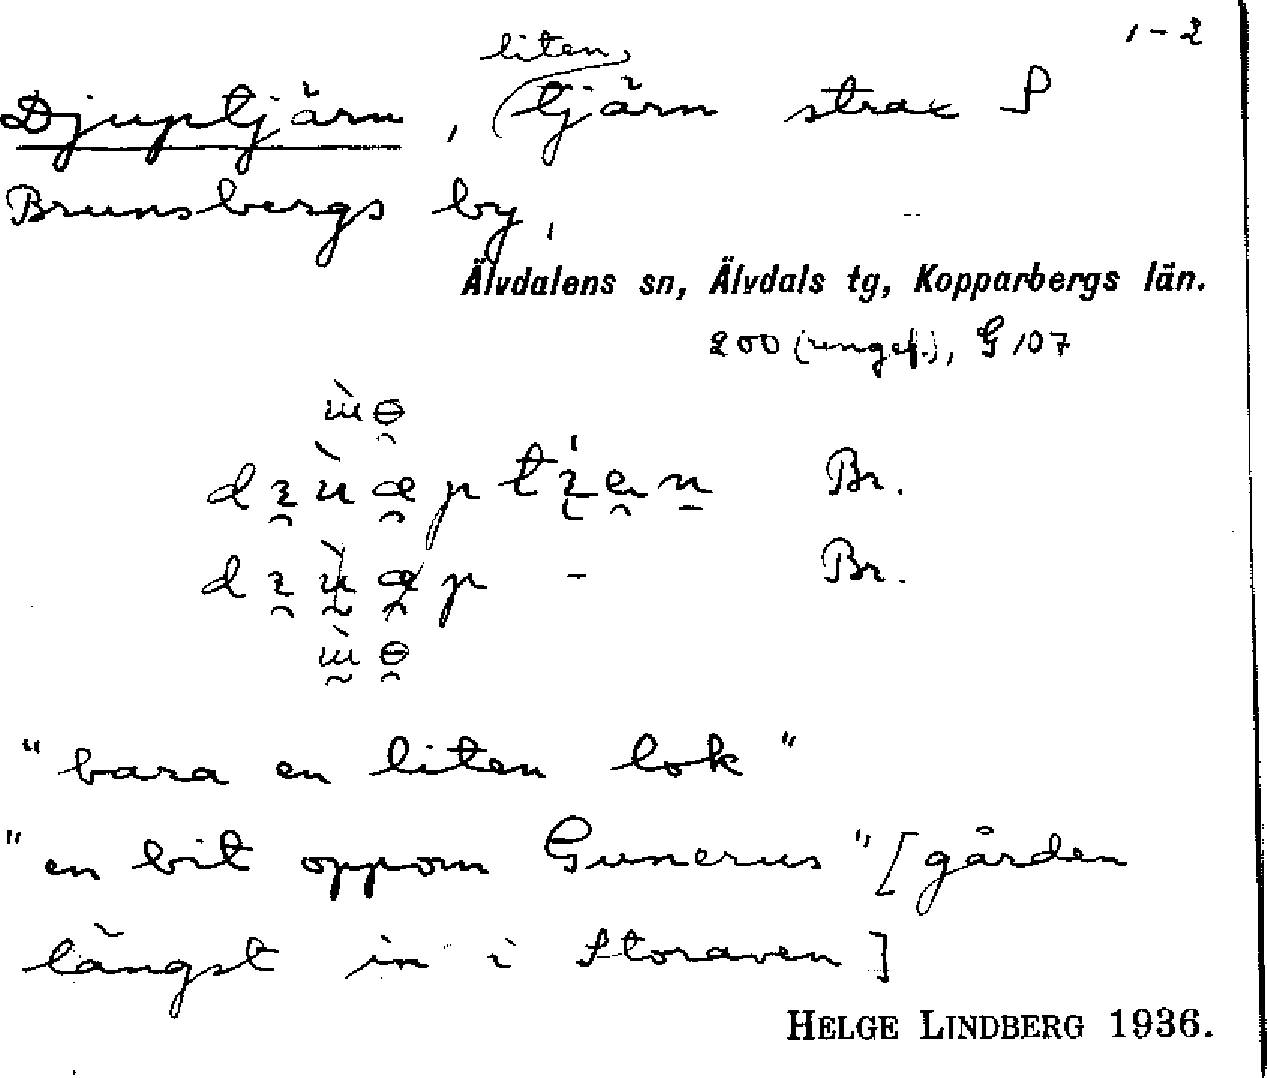 1-2
liten
Djuptjärn, tjärn strax S
Brunsbergs by,
Älvdalens sn, Älvdals tg, Kopparbergs län.
200 (ungef.), G 107
Br.
Br.
"bara en liten lok"
"en bit oppom Gunerus" [gården
längst in i Storaven]
HELGE LINDBERG 1936.